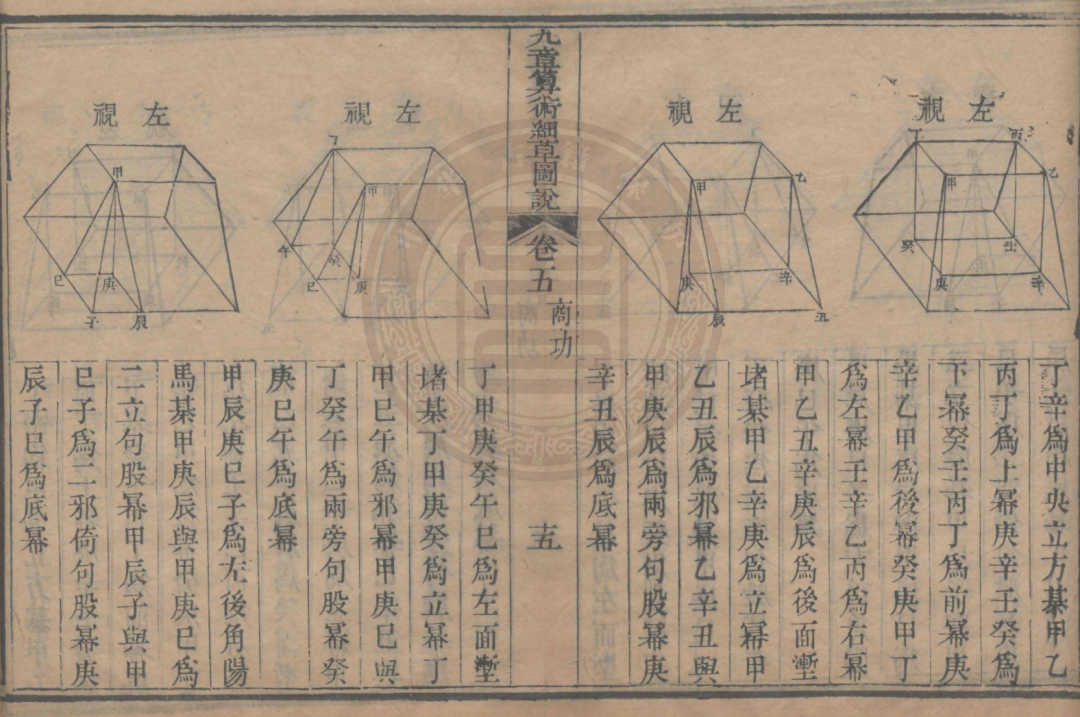 左視
丁
丙
甲
乙
癸
壬
庚
辛
左視
甲
乙
庚
辛
辰
丑
丁辛爲中央立方棊甲乙
丙丁爲上冪庚辛壬癸爲
下冪癸壬丙丁爲前冪庚
辛乙甲爲後冪癸庚甲丁
爲左冪壬辛乙丙爲右冪
甲乙丑辛庚辰爲後面塹
堵棊甲乙辛庚爲立冪甲
乙丑辰爲邪冪乙辛丑與
甲庚辰爲兩旁句股冪庚
辛丑辰爲底冪
九章算術細草圖說
卷五
商功
十五
左視
丁
甲
午
癸
巳
庚
左視
甲
巳
庚
子
辰
丁甲庚癸午巳爲左面塹
堵棊丁甲庚癸爲立冪丁
甲巳午爲邪冪甲庚巳與
丁癸午爲兩旁句股冪癸
庚巳午爲底冪
甲辰庚巳子爲左後角陽
馬棊甲庚辰與甲庚巳爲
二立句股冪甲辰子與甲
巳子爲二邪倚句股冪庚
辰子巳爲底冪